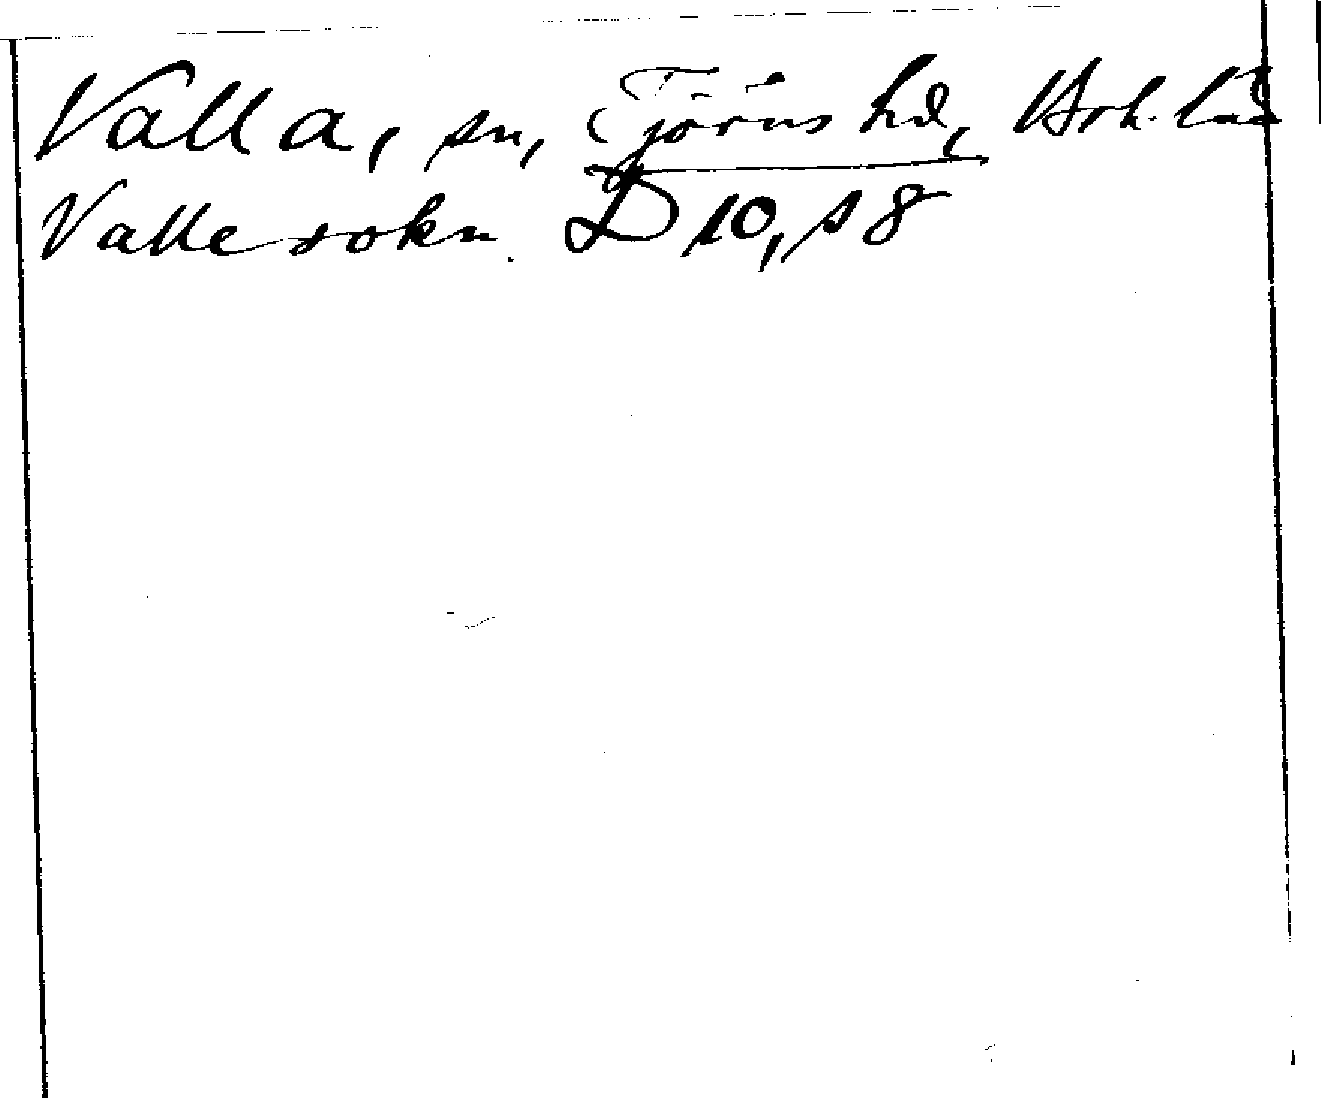 Valla, sn, Tjörns hd, Boh. län
Valle sokn. D 10, s 8